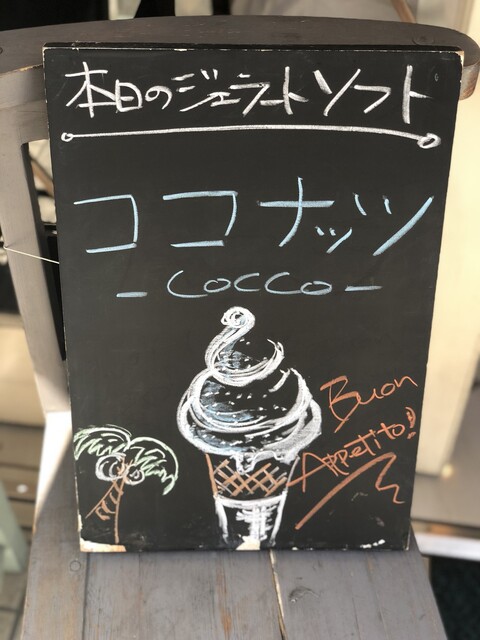 本日のジェラートソフト
ココナッツ
- COCCO -
Buon
Appetito!